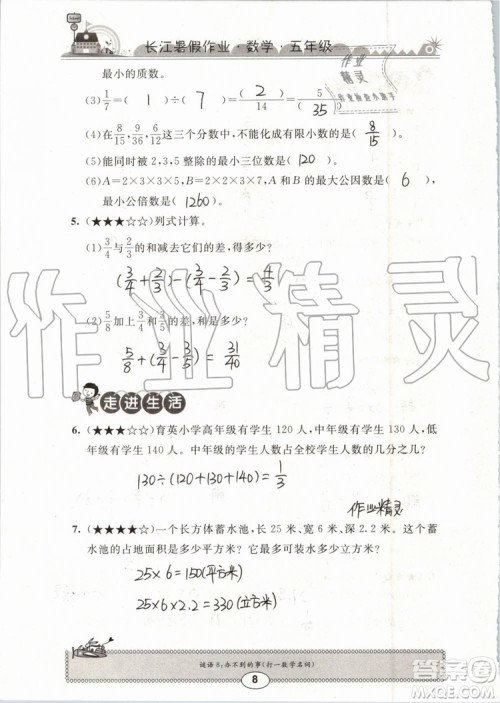 长江暑假作业·数学·五年级
作业
精灵
最小的质数。
(3) 1/7 = ( 1 ) ÷ ( 7 ) = ( 2 )/14 = 5/( 35 )
(4)在 8/15, 9/36, 6/12 这三个分数中，不能化成有限小数的是( 8/15 )。
(5)能同时被2,3,5整除的最小三位数是( 120 )。
(6)A=2×3×3×5,B=2×2×3×7,A和B的最大公因数是( 6 ),
最小公倍数是( 1260 )。
5. (★★★☆☆)列式计算。
(1) 3/4 与 2/3 的和减去它们的差,得多少?
(3/4+2/3)-(3/4-2/3)=4/3
(2) 5/8 加上 3/4 和 3/5 的差,和是多少?
5/8+(3/4-3/5)=31/40
走进生活
6. (★★★☆☆)育英小学高年级有学生120人,中年级有学生130人,低
年级有学生140人。中年级的学生人数占全校学生人数的几分之几?
130÷(120+130+140)=1/3
作业精灵
7. (★★★★☆)一个长方体蓄水池,长25米、宽6米、深2.2米。这个蓄
水池的占地面积是多少平方米?它最多可装水多少立方米?
25×6=150(平方米)
25×6×2.2=330(立方米)
谜语9:办不到的事(打一数学名词)
8
作业精灵
答案圈
MXQE.COM